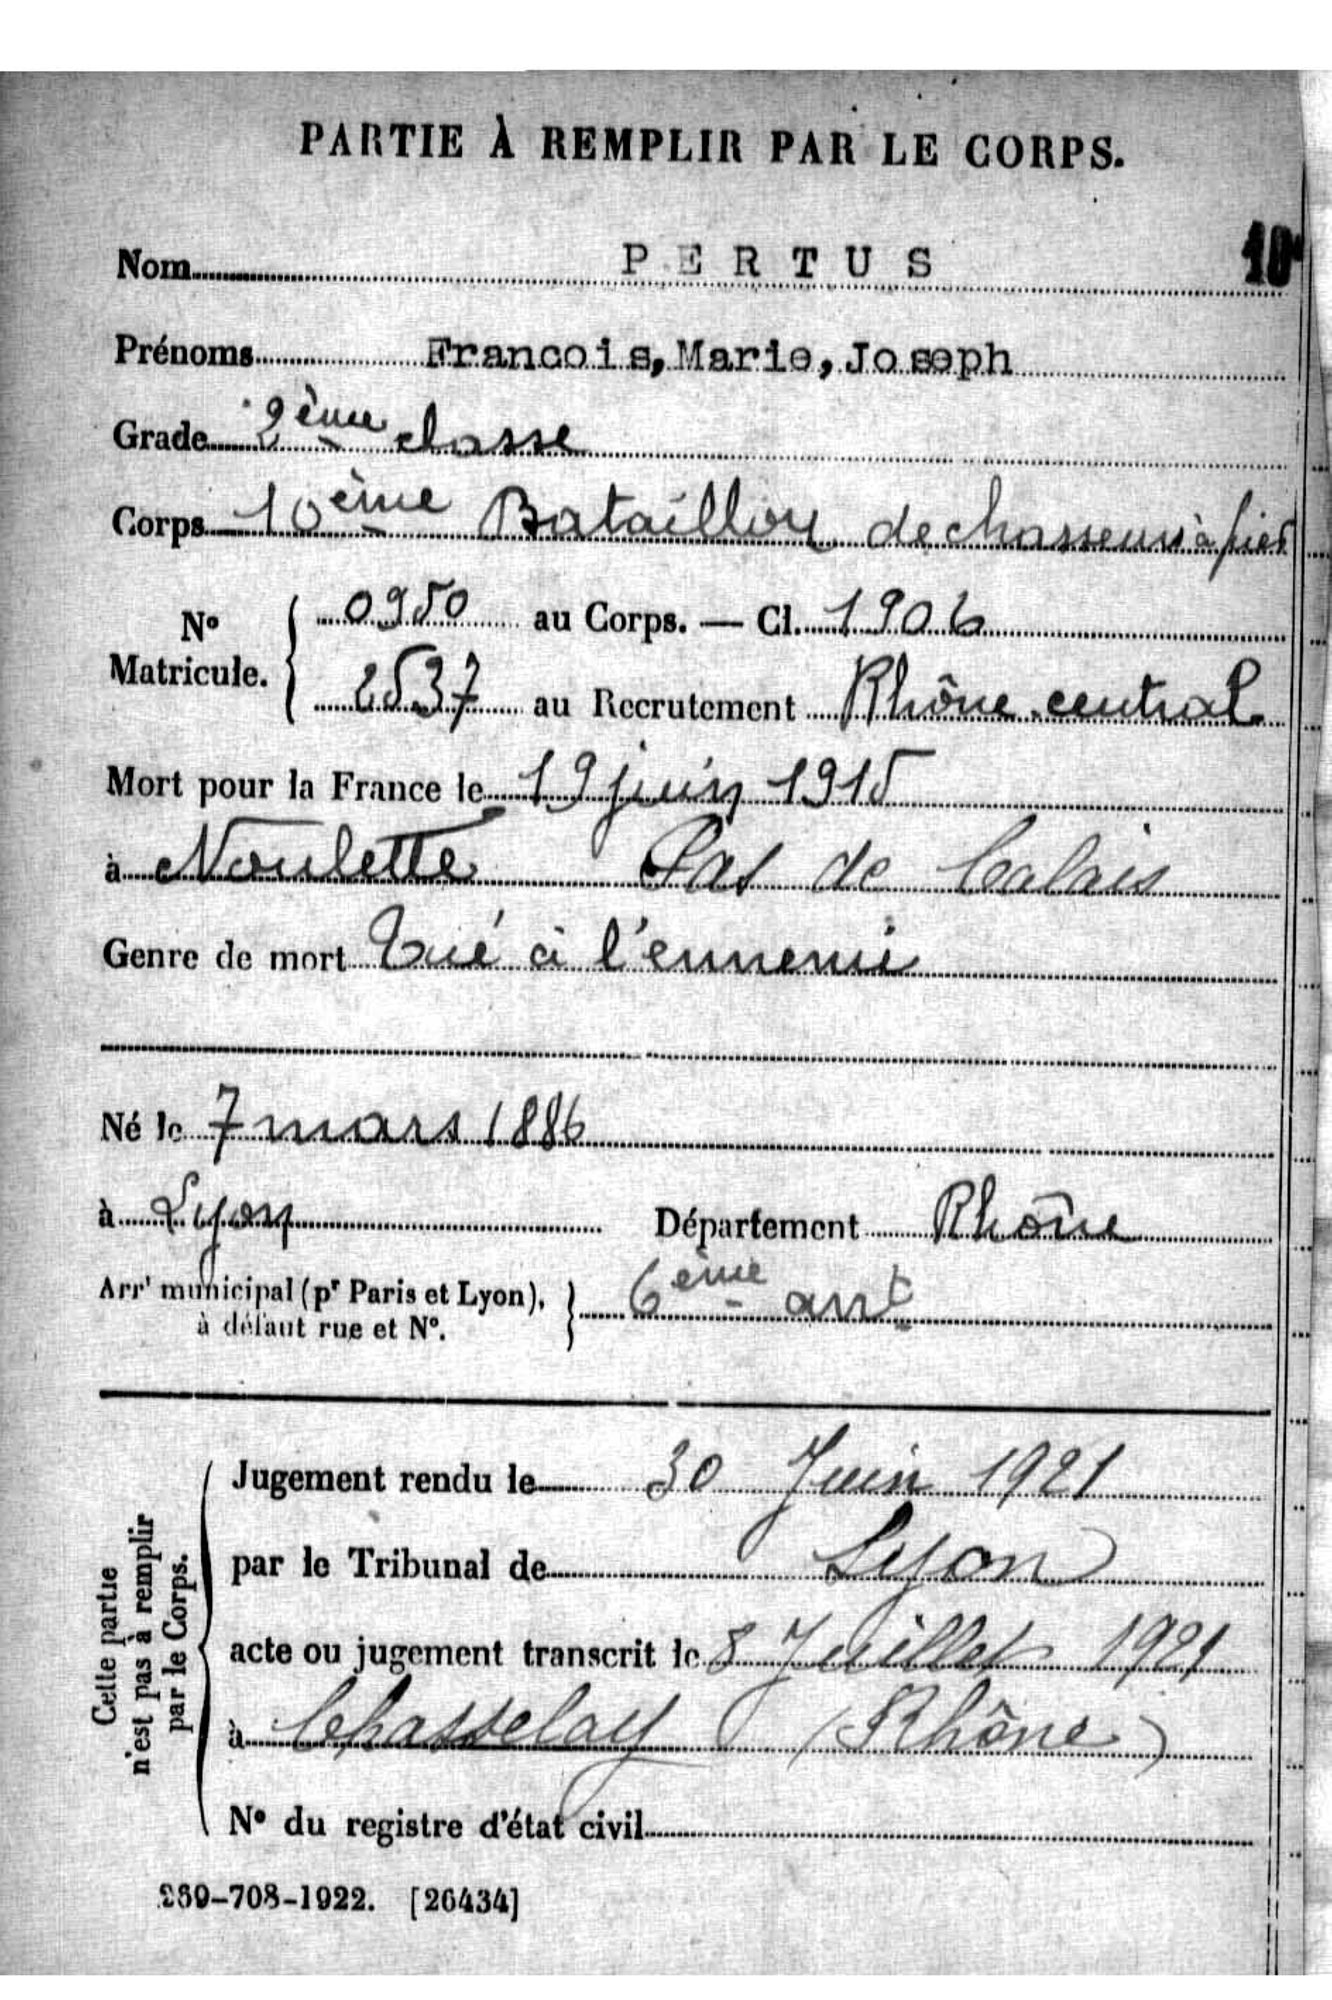 PARTIE À REMPLIR PAR LE CORPS.
Nom PERTUS 10
Prénoms Francois, Marie, Joseph
Grade 2ème classe
Corps 10ème Bataillon de chasseurs à pied
N° Matricule. 0950 au Corps. — Cl. 1906
2537 au Recrutement Rhône central
Mort pour la France le 19 juin 1915
à Noulette Pas de Calais
Genre de mort Tué à l'ennemi
Né le 7 mars 1886
à Lyon Département Rhône
Arrt municipal (pr Paris et Lyon), 6ème arrt
à défaut rue et N°.
Cette partie n'est pas à remplir par le Corps.
Jugement rendu le 30 Juin 1921
par le Tribunal de Lyon
acte ou jugement transcrit le 8 Juillet 1921
à Chasselay (Rhône)
N° du registre d'état civil
269-708-1922. [26434]